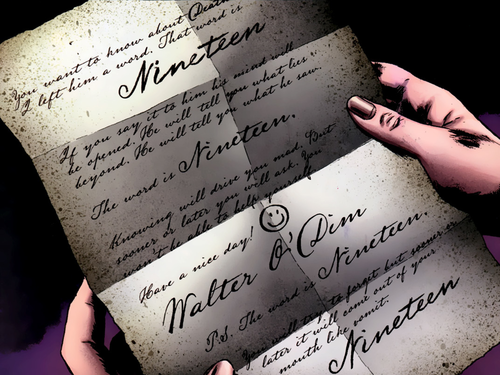 You want to know about Death.
I left him a word. That word is
Nineteen
If you say it to him his mind will
be opened. He will tell you what lies
beyond. He will tell you what he saw.
The word is Nineteen.
Knowing will drive you mad. But
sooner or later you will ask. You
won't be able to help yourself.
Have a nice day!
Walter O'Dim
P.S. The word is Nineteen.
You will try to forget but sooner or
later it will come out of your
mouth like vomit.
Nineteen